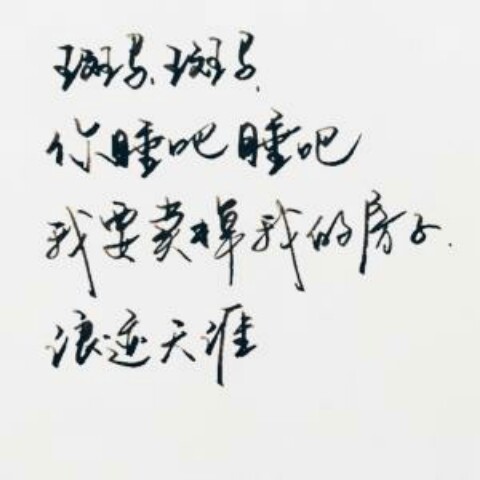 斑马、斑马、
你睡吧睡吧
我要卖掉我的房子.
浪迹天涯